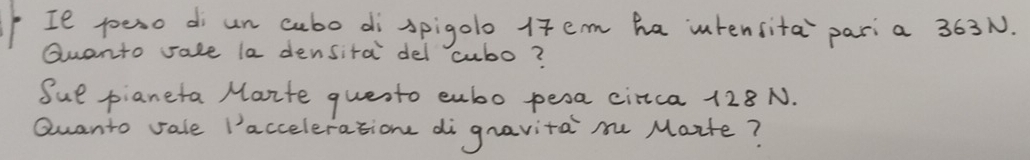 Il peso di un cubo di spigolo 17 cm ha intensità pari a 363 N.
Quanto vale la densità del cubo?
Sul pianeta Marte questo cubo pesa circa 128 N.
Quanto vale l'accelerazione di gravità su Marte?